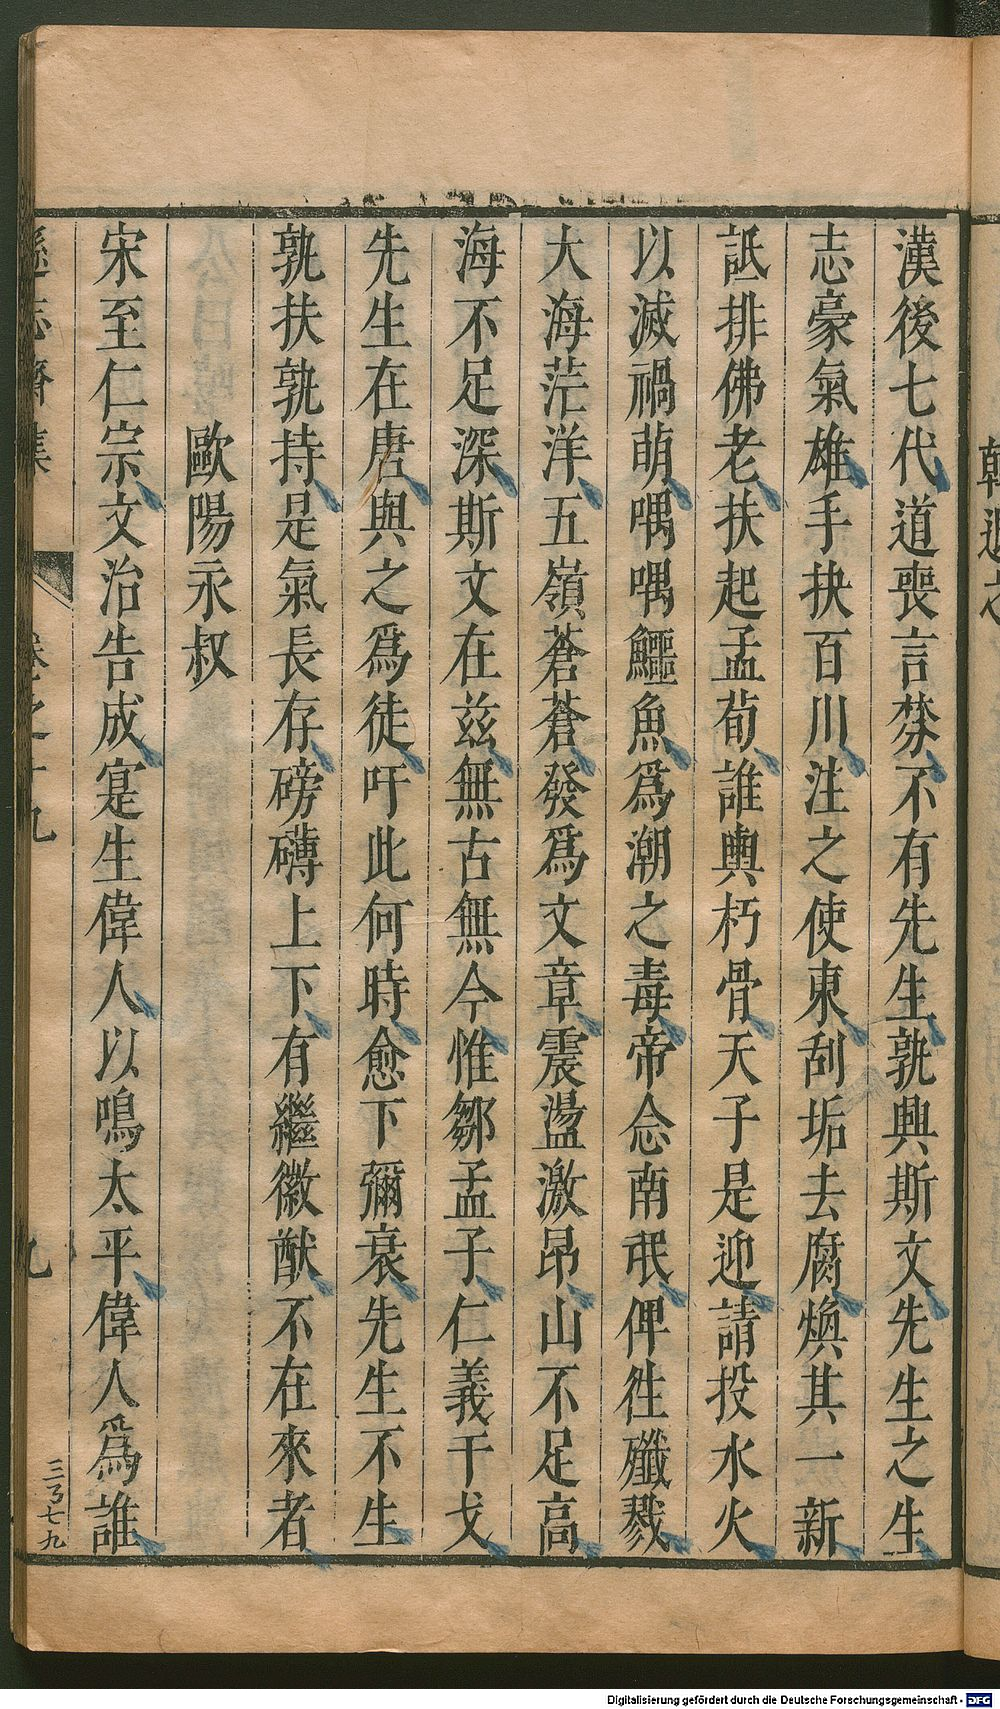 漢後七代道喪言棼不有先生孰興斯文先生之生
志豪氣雄手抉百川注之使東刮垢去腐煥其一新
詆排佛老扶起孟荀誰輿朽骨天子是迎請投水火
以滅禍萌喁喁鱷魚爲潮之毒帝念南氓俾徃殲戮
大海茫洋五嶺蒼蒼發爲文章震盪激昂山不足高
海不足深斯文在茲無古無今惟鄒孟子仁義干戈
先生在唐與之爲徒吁此何時愈下彌衰先生不生
孰扶孰持是氣長存磅礴上下有繼徽猷不在來者
歐陽永叔
宋至仁宗文治告成寔生偉人以鳴太平偉人爲誰
遜志齋集 卷之十九 九
三丂七九
Digitalisierung gefördert durch die Deutsche Forschungsgemeinschaft - DFG